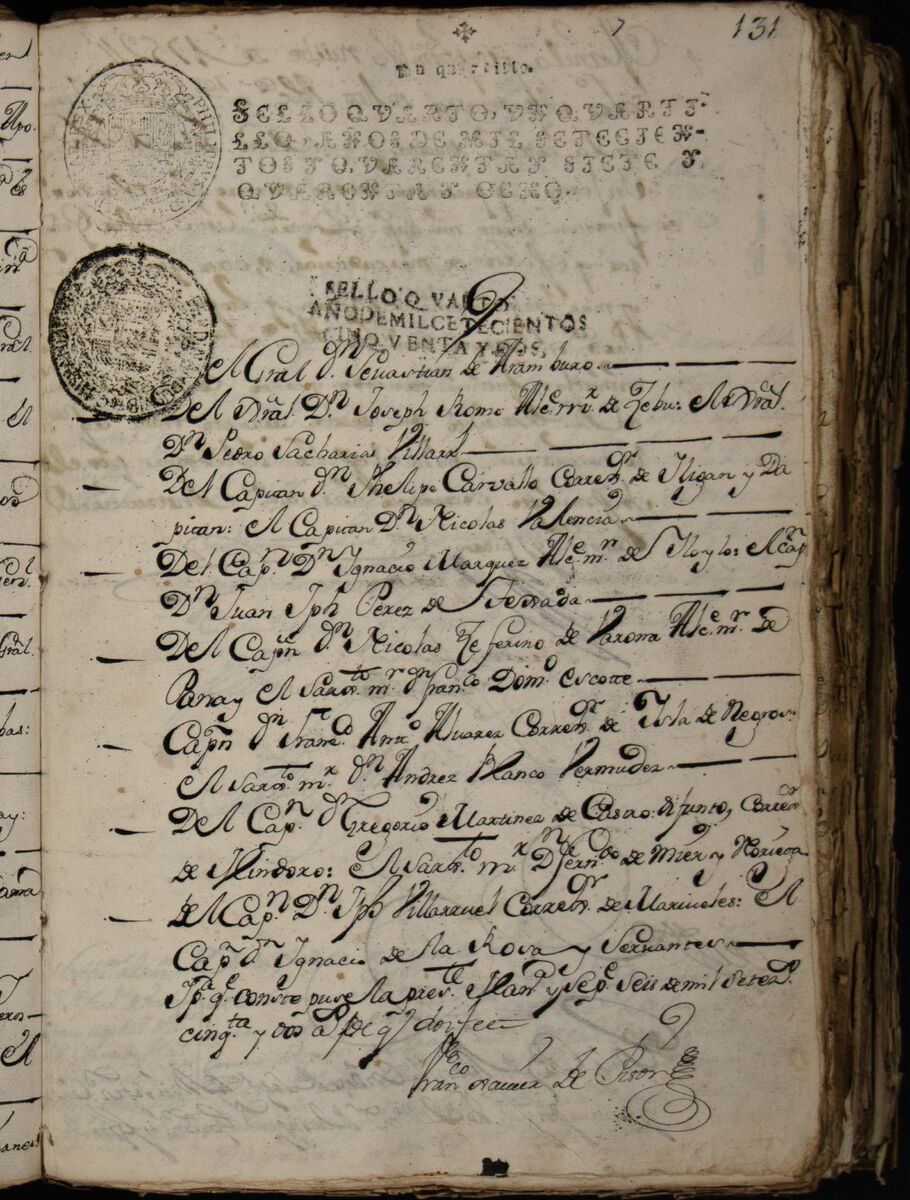 131
Un quartillo.
SELLO QVARTO, VN QVARTI-
LLO, AÑOS DE MIL SETECIEN-
TOS Y QVARENTA Y SIETE Y
QVARENTA Y OCHO.
SELLO QVARTO
AÑO DE MIL CETECIENTOS
CINQVENTA Y DOS,
Al Gral Dn Sevastian de Aramburo
Del Gral. Dn Joseph Romo Alc. mr. de Zebu: Al Gral.
Dn Pedro Sacharias Villarl
Del Capitan Dn Phelipe Carvallo Corregr. de Iligan y Da
pitan: Al Capitan Dn Nicolas Valencia
Del Capn. Dn Ignacio Marquez Alc. mr. de Iloylo: Al Capn
Dn Juan Jph Perez de
Del Capn Dn Nicolas Zeferino de Varona Alc. mr. de
Panay Al Sargto. mr. Dn franco Domo. Escotte
Capn Dn Franco. Anto Alvarez Corregr. de Isla de Negros:
Al Sargto. mr. Dn Andrez Blanco Vermudez
Del Capn. Dn Gregorio Martinez de Castro difunto, Corregr
de Mindoro: Al Sargto mr Dn Ferndo de Mier y Noriega
Del Capn Dn Jph Villarruel Corregr. de Mariveles: Al
Capn Dn Ignacio de la Rosa y Servantes
Ya. qe conste puse la preste. Mana y Sepe Seis de mil Setezs.
cinqta y dos as de qe doy fee
Franco Xavier De